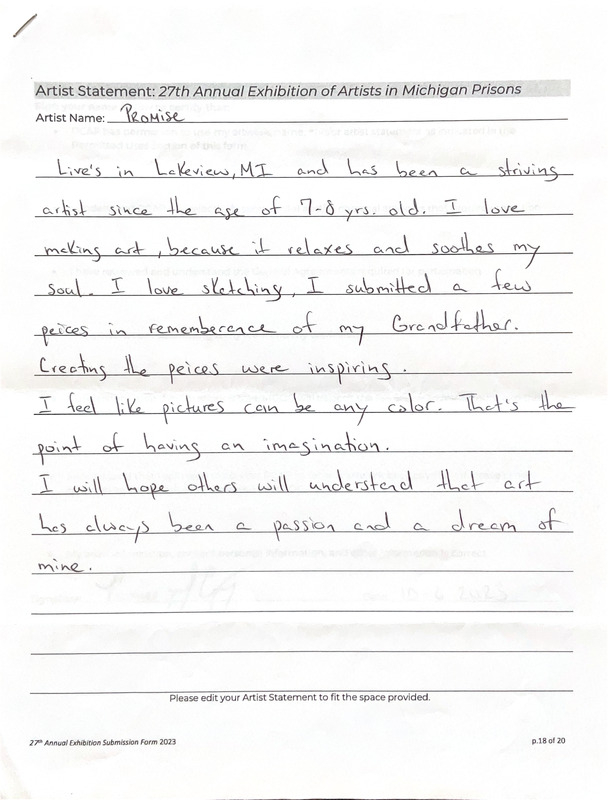 Artist Statement: 27th Annual Exhibition of Artists in Michigan Prisons
Artist Name: Promise
Live's in Lakeview, MI and has been a striving
artist since the age of 7-8 yrs. old. I love
making art, because it relaxes and soothes my
soul. I love sketching, I submitted a few
peices in rememberance of my Grandfather.
Creating the peices were inspiring.
I feel like pictures can be any color. That's the
point of having an imagination.
I will hope others will understand that art
has always been a passion and a dream of
mine.
Please edit your Artist Statement to fit the space provided.
27th Annual Exhibition Submission Form 2023
p.18 of 20